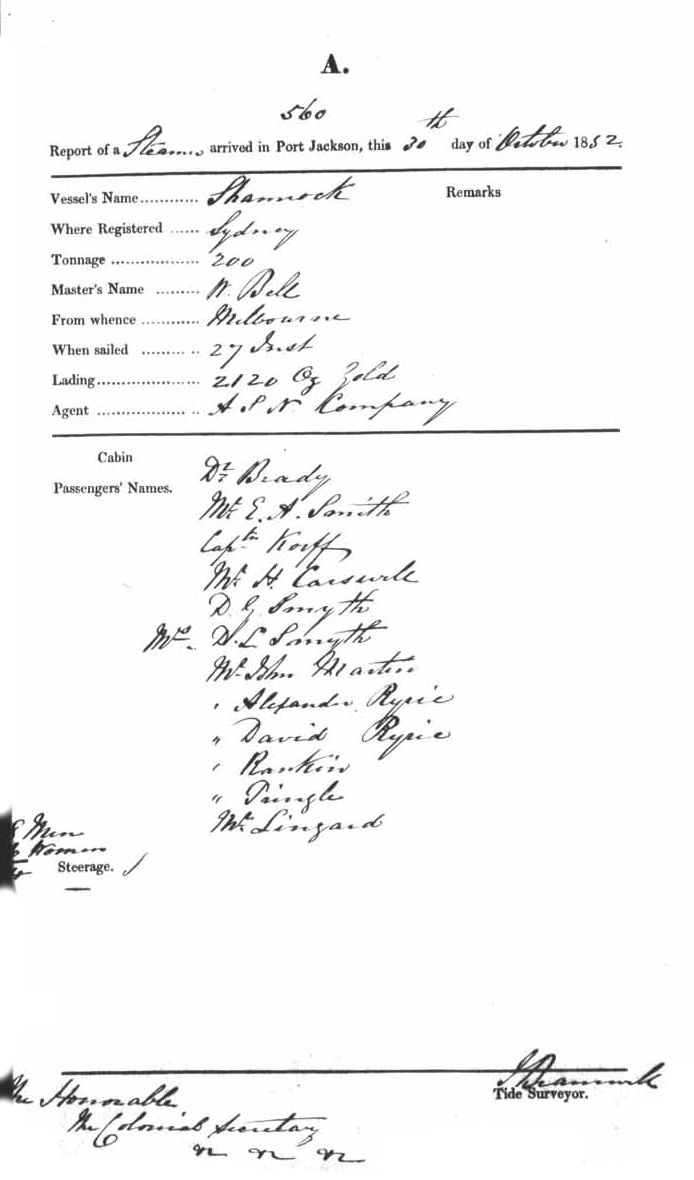 A.
560
Report of a Steamer arrived in Port Jackson, this 30th day of October 1852.
Vessel's Name............ Shamrock
Remarks
Where Registered ...... Sydney
Tonnage .................. 200
Master's Name ......... W. Bell
From whence ............ Melbourne
When sailed ............ 27 Inst
Lading..................... 2120 Oz Gold
Agent ..................... A S N Company
Cabin
Passengers' Names.
Dr. Brady
Mr. E. A. Smith
Captn Korff
Mr. H. Carswell
D. G. Smyth
Mrs. D. L Smyth
Mr. John Martin
" Alexander Ryrie
" David Ryrie
" Rankin
" Pringle
Mr. Lingard
Men
Women
Steerage.
Tide Surveyor.
The Honorable
The Colonial Secretary